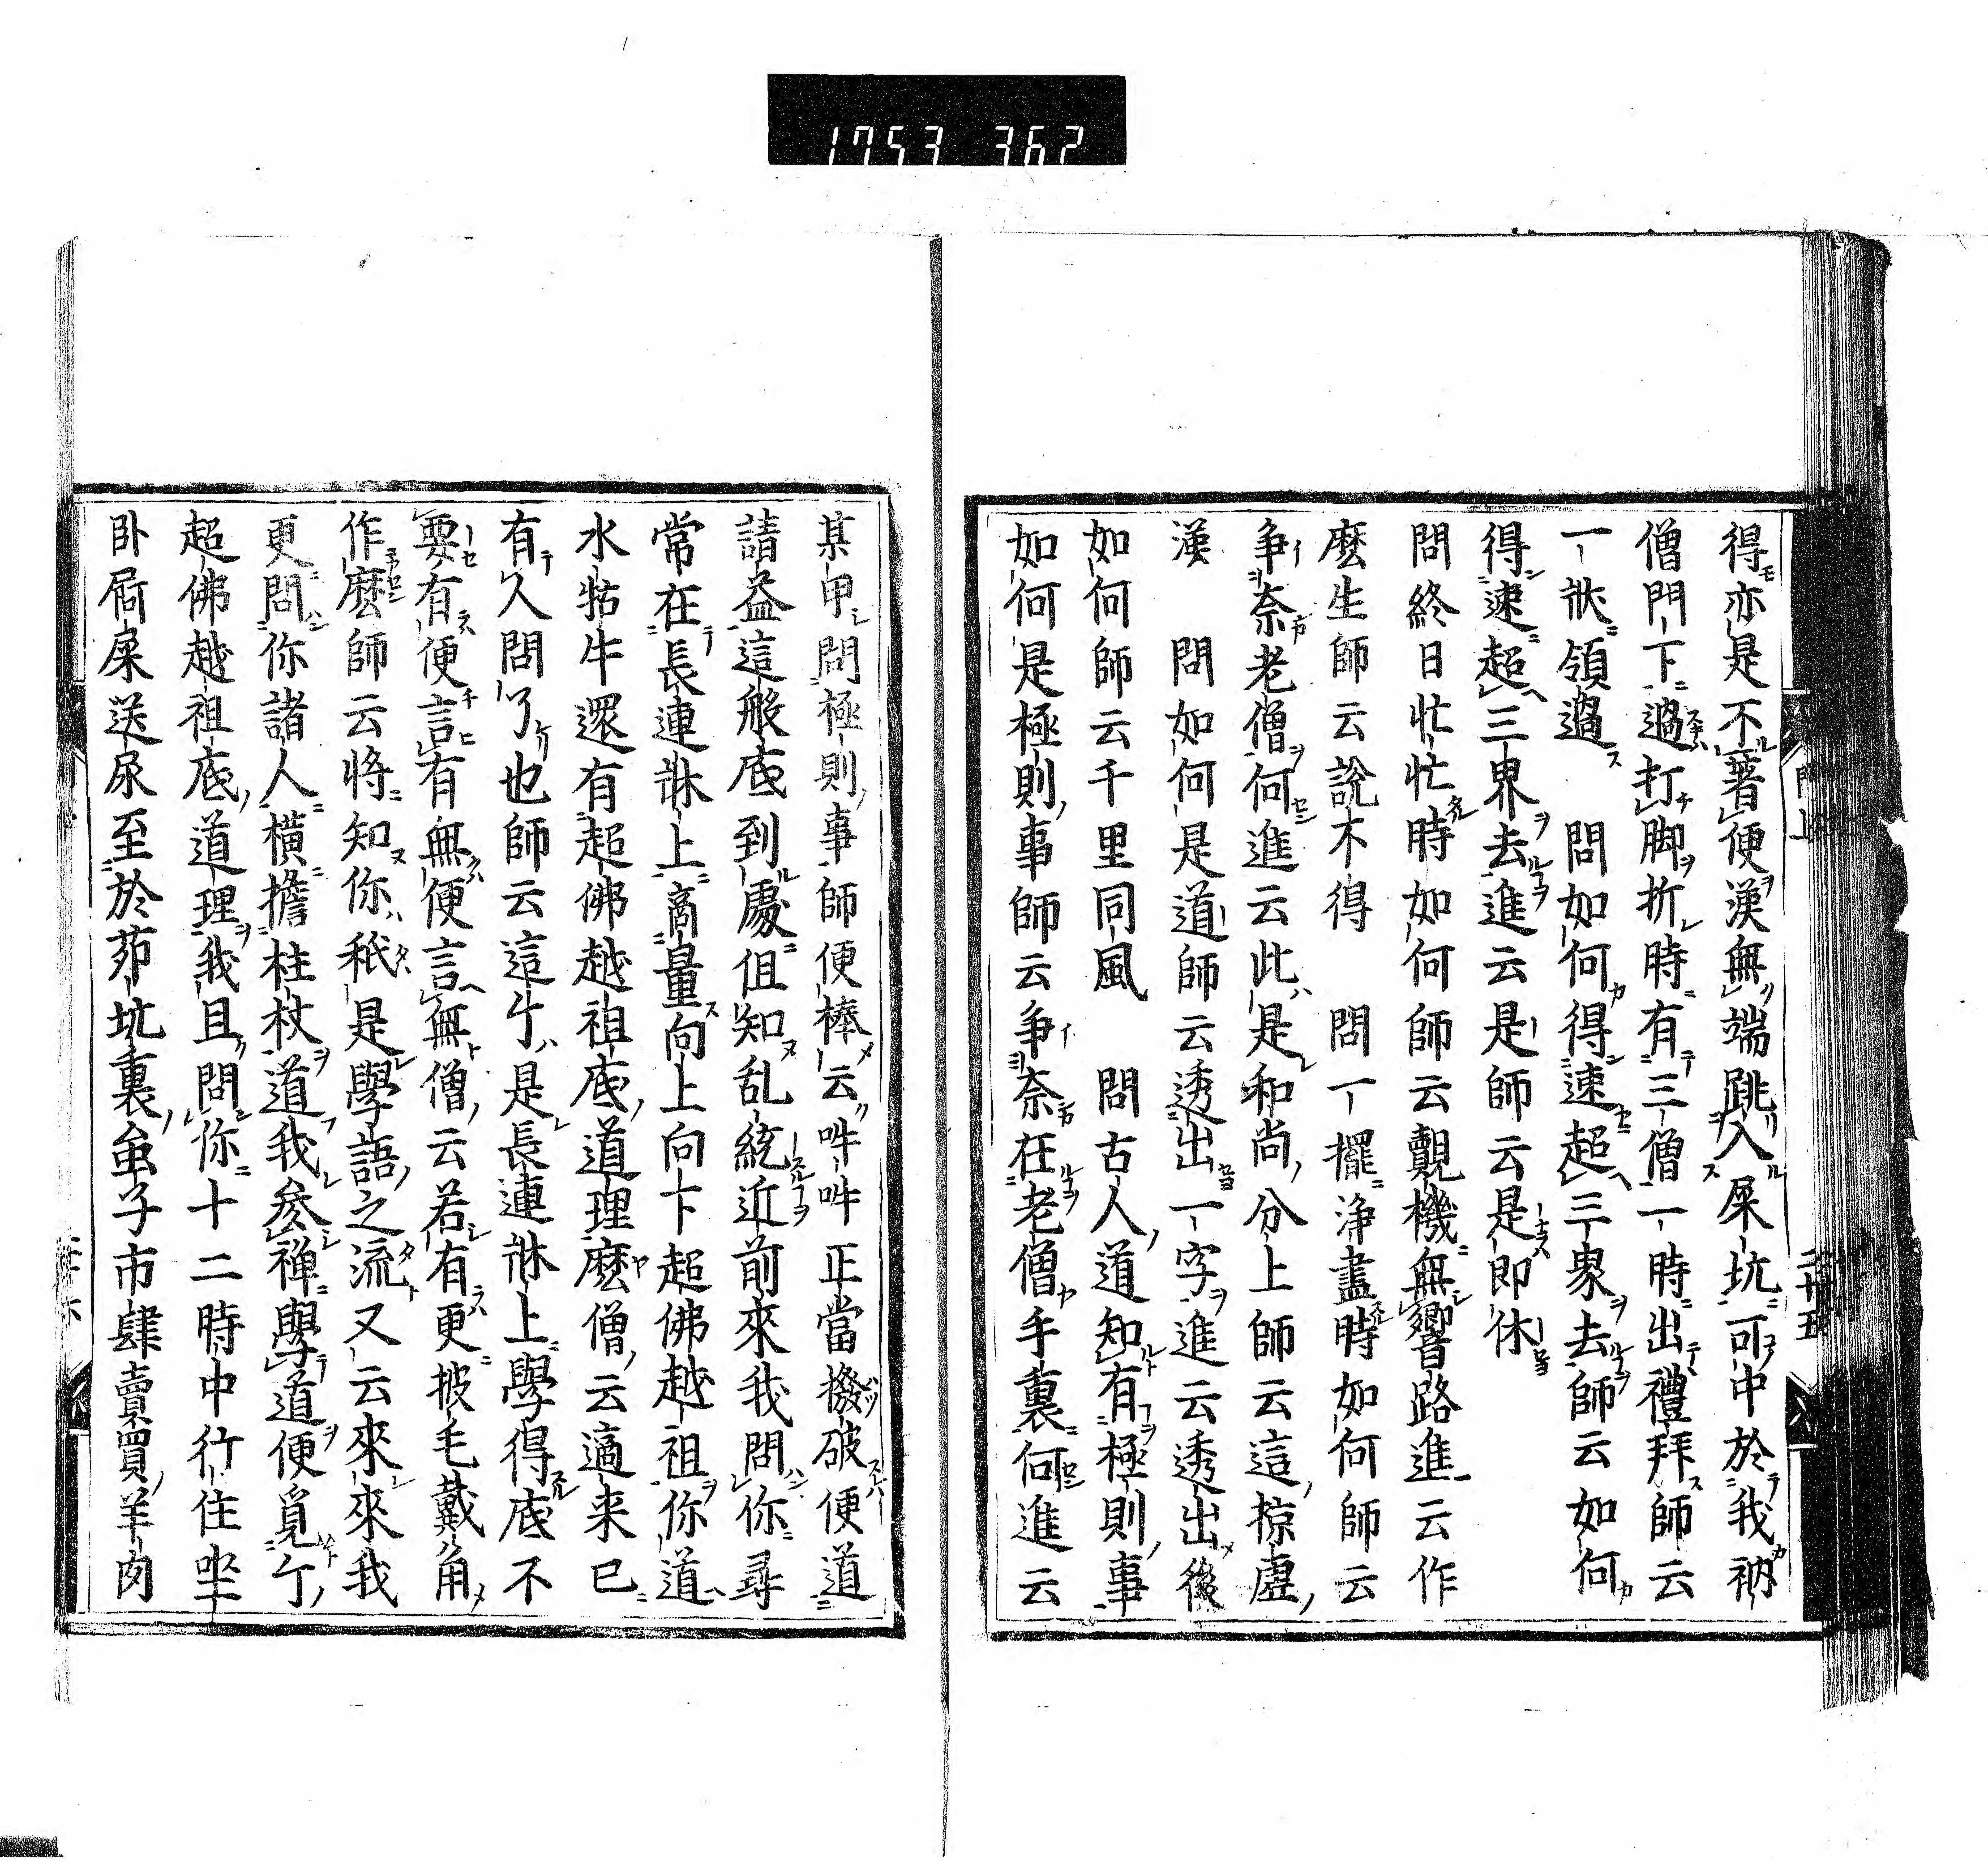 1753 362
得亦是不著便漢無端跳入屎坑可中於我衲
僧門下過打脚折時有三僧一時出禮拜師云
一狀領過 問如何得速超三界去師云如何
得速超三界去進云是師云是即休
問終日忙忙時如何師云覿機無響路進云作
麼生師云說不得 問一擺淨盡時如何師云
爭奈老僧何進云此是和尚分上師云這掠虛
漢 問如何是道師云透出一字進云透出後
如何師云千里同風 問古人道知有極則事
如何是極則事師云爭奈在老僧手裏何進云
某甲問極則事師便棒云吽吽正當撥破便道
請益這般底到處但知乱統近前來我問你尋
常在長連牀上商量向上向下超佛越祖你道
水牯牛還有超佛越祖底道理麼僧云適来已
有人問了也師云這个是長連牀上學得底不
要有便言有無便言無僧云若有更披毛戴角
作麼師云將知你秖是學語之流又云來來我
更問你諸人橫擔柱杖道我叅禪學道便覓个
超佛越祖底道理我且問你十二時中行住坐
卧屙屎送尿至於茆坑裏虫子市肆賣買羊肉
二十五